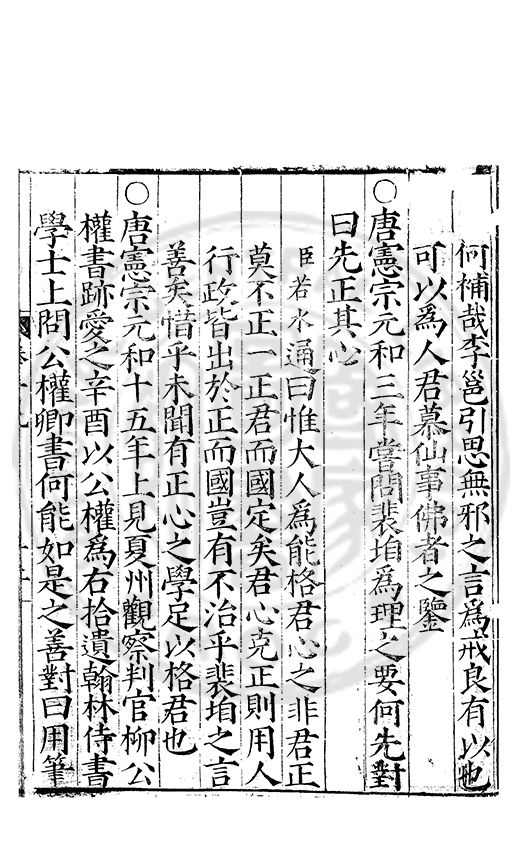 何補哉李邕引思無邪之言為戒良有以也
可以為人君慕仙事佛者之鑒
○唐憲宗元和三年嘗問裴垍為理之要何先對
曰先正其心
臣若水通曰惟大人為能格君心之非君正
莫不正一正君而國定矣君心克正則用人
行政皆出於正而國豈有不治乎裴垍之言
善矣惜乎未聞有正心之學足以格君也
○唐憲宗元和十五年上見夏州觀察判官柳公
權書跡愛之辛酉以公權為右拾遺翰林侍書
學士上問公權卿書何能如是之善對曰用筆